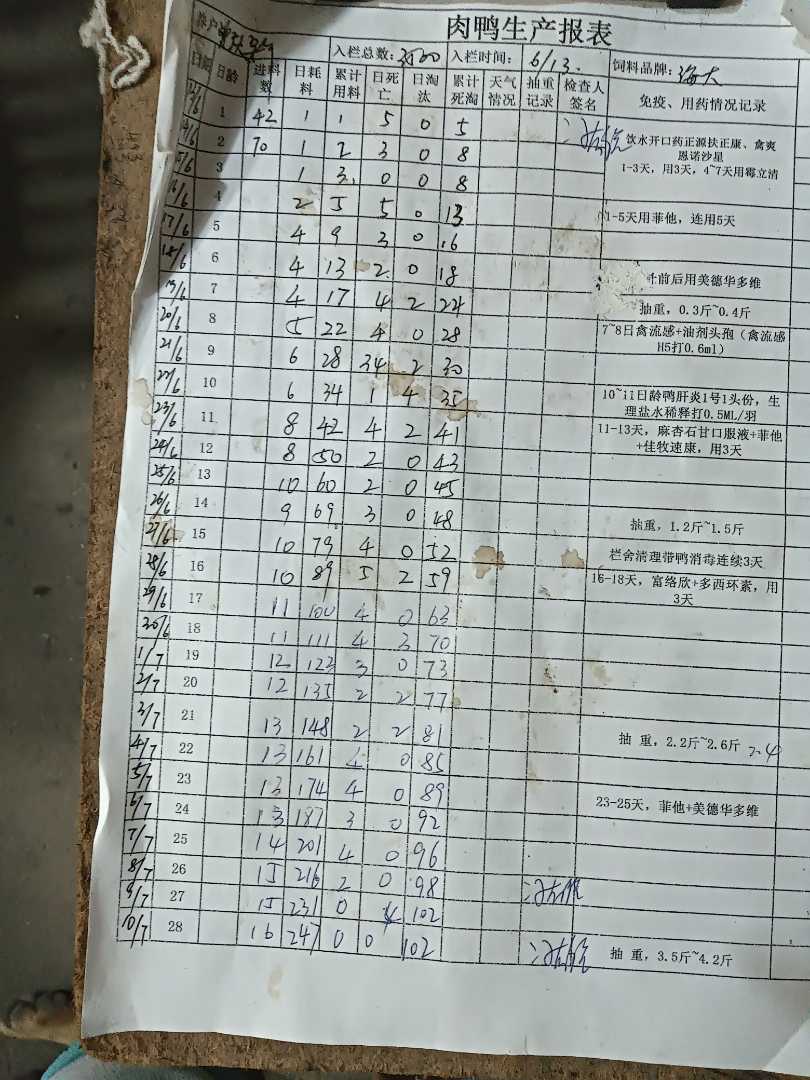 肉鸭生产报表
养户 入栏总数: 3500 入栏时间: 6/13. 饲料品牌: 海大
日期 日龄 进料数 日耗料 累计用料 日死亡 日淘汰 累计死淘 天气情况 抽重记录 检查人签名 免疫、用药情况记录
1 42 1 1 5 0 5 饮水开口药正源扶正康、禽爽
恩诺沙星
14/6 2 70 1 2 3 0 8 1-3天，用3天，4~7天用霉立清
15/6 3 1 3 0 0 8
16/6 4 2 5 5 0 13 1-5天用菲他，连用5天
17/6 5 4 9 3 0 16
18/6 6 4 13 2 0 18 前后用美德华多维
19/6 7 4 17 4 2 24 抽重，0.3斤~0.4斤
20/6 8 5 22 4 0 28 7~8日禽流感+油剂头孢（禽流感
H5打0.6ml）
21/6 9 6 28 34 2 30
22/6 10 6 34 1 4 35 10~11日龄鸭肝炎1号1头份，生
理盐水稀释打0.5ML/羽
23/6 11 8 42 4 2 41 11-13天，麻杏石甘口服液+菲他
+佳牧速康，用3天
24/6 12 8 50 2 0 43
25/6 13 10 60 2 0 45
26/6 14 9 69 3 0 48 抽重，1.2斤~1.5斤
27/6 15 10 79 4 0 52 栏舍清理带鸭消毒连续3天
28/6 16 10 89 5 2 59 16-18天，富络欣+多西环素，用
3天
29/6 17 11 100 4 0 63
30/6 18 11 111 4 3 70
1/7 19 12 123 3 0 73
2/7 20 12 135 2 2 77
3/7 21 13 148 2 2 81 抽 重，2.2斤~2.6斤 2.4
4/7 22 13 161 4 0 85
5/7 23 13 174 4 0 89 23-25天，菲他+美德华多维
6/7 24 13 187 3 0 92
7/7 25 14 201 4 0 96
8/7 26 15 216 2 0 98
9/7 27 15 231 0 4 102
10/7 28 16 247 0 0 102 抽 重，3.5斤~4.2斤